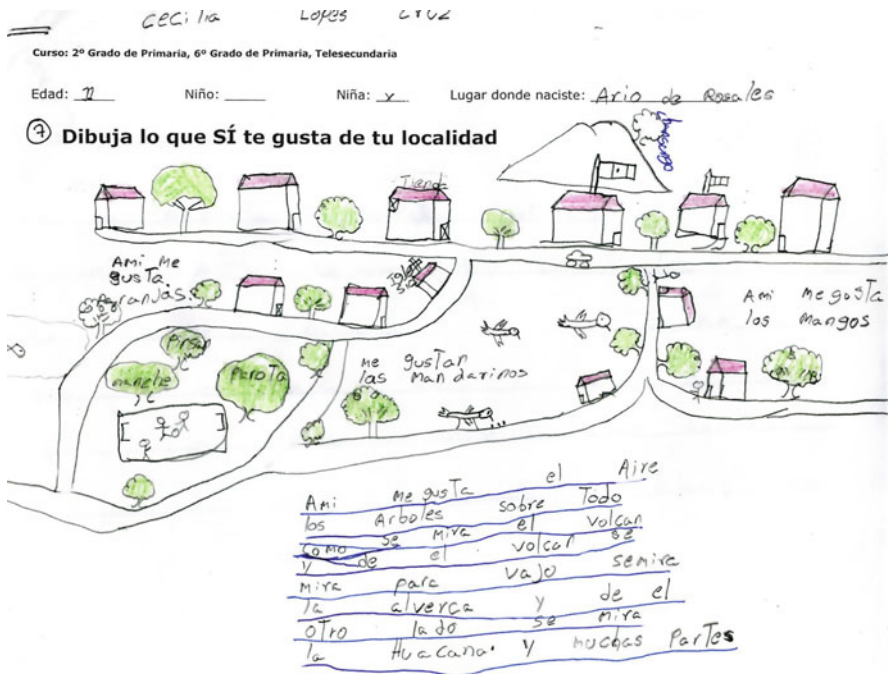 Cecilia Lopes Cruz
Curso: 2º Grado de Primaria, 6º Grado de Primaria, Telesecundaria
Edad: 11 Niño: ____ Niña: x Lugar donde naciste: Ario de Rosales
7 Dibuja lo que SÍ te gusta de tu localidad
Tienda
Ami Me
gusTa
granjas.
Igle
sia
Ami Me gusTa
los Mangos
nanche
ParoTa
me gusTan
las Mandarinos
Ami me gusTa el Aire
los Arboles sobre Todo
como se mira el volcan
y de el volcan se
mira para vajo semira
la alverca y de el
oTro lado se mira
la Huacana. y muchas ParTes